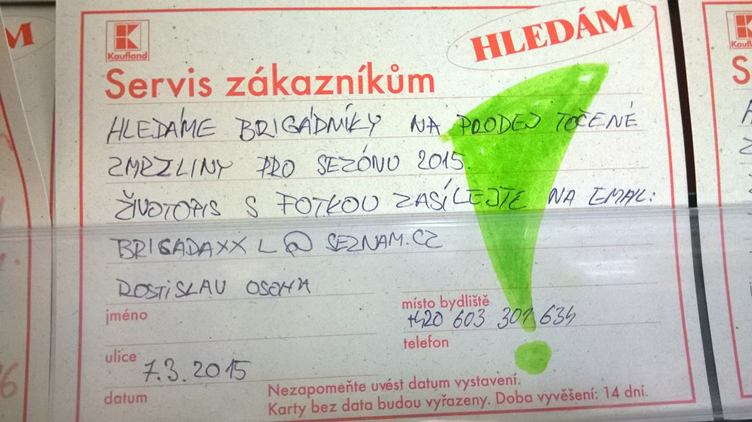 Kaufland
HLEDÁM
Servis zákazníkům
HLEDÁME BRIGÁDNÍKY NA PRODEJ TOČENÉ
ZMRZLINY PRO SEZÓNU 2015.
ŽIVOTOPIS S FOTKOU ZASÍLEJTE NA EMAIL:
BRIGADAXXL@SEZNAM.CZ
ROSTISLAV
jméno
místo bydliště
+420 603 301 634
ulice
telefon
7.3.2015
datum
Nezapomeňte uvést datum vystavení.
Karty bez data budou vyřazeny. Doba vyvěšení: 14 dní.